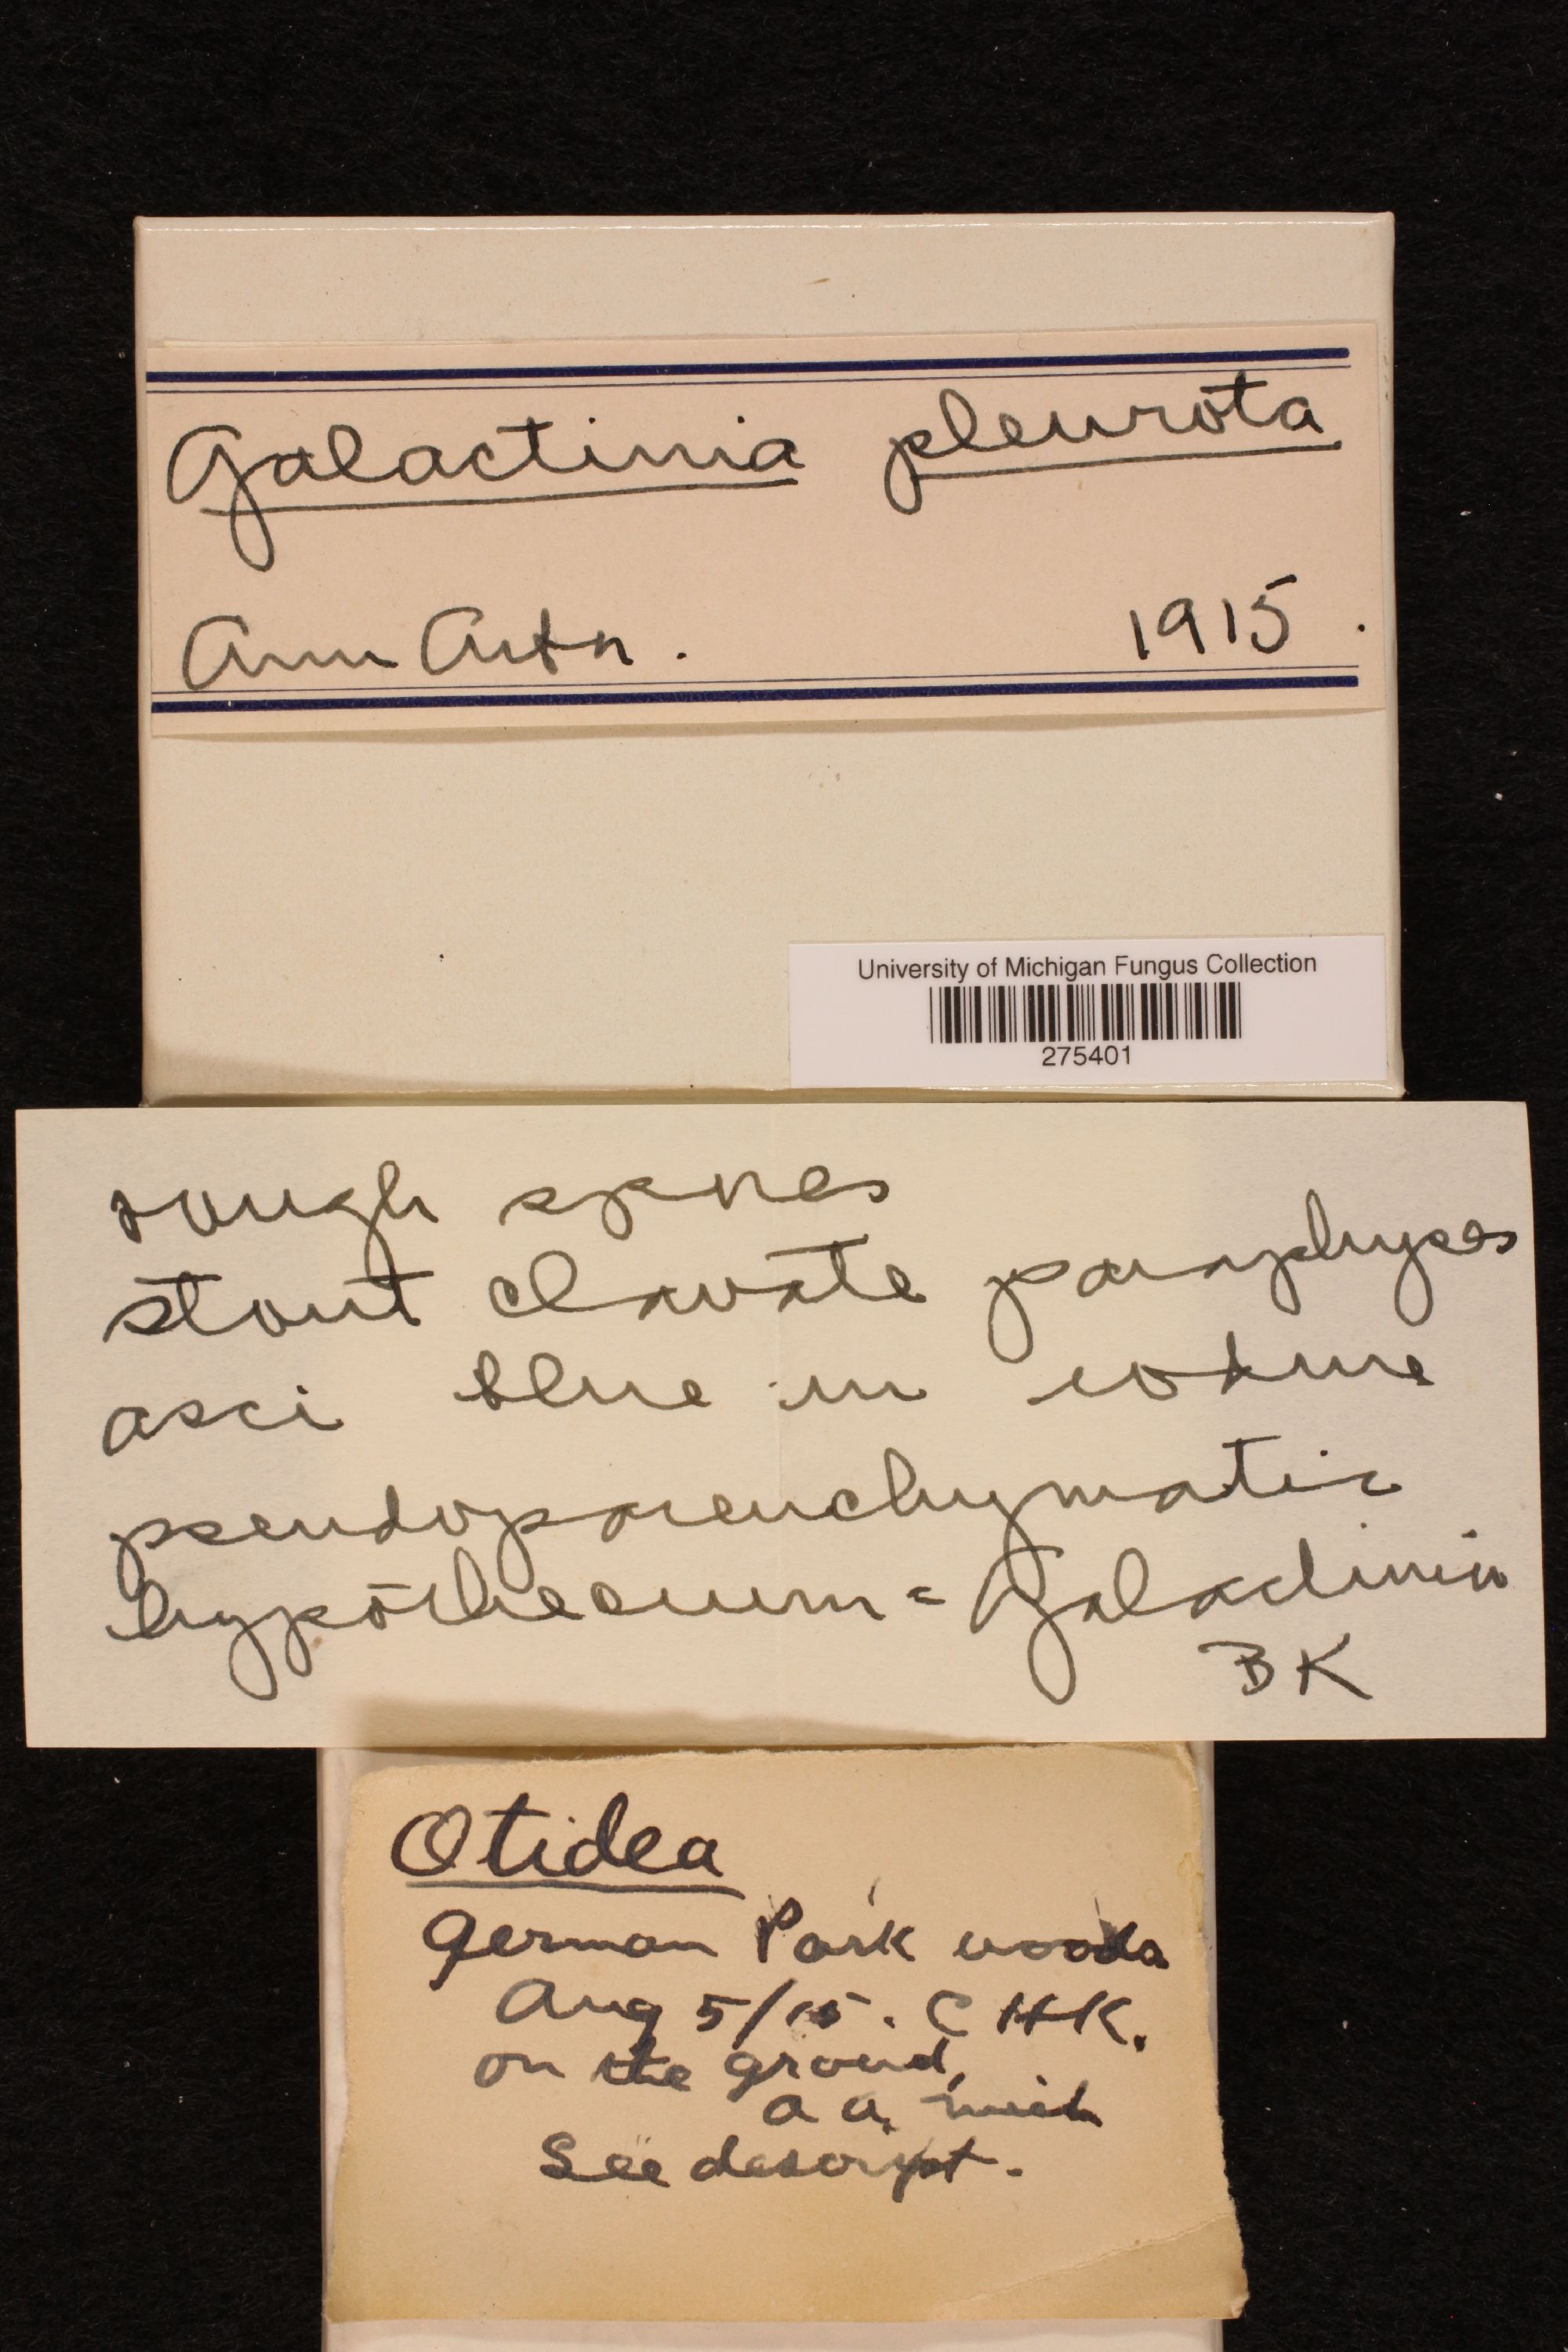 Galactinia pleurota
Ann Arbor. 1915.
University of Michigan Fungus Collection
275401
rough spores
stout clavate paraphyses
asci blue in iodine
pseudoparenchymatic
hypothecium = Galactinia
BK
Otidea
German Park woods
Aug 5/15. CHK.
on the ground,
a a. mich
See descript.